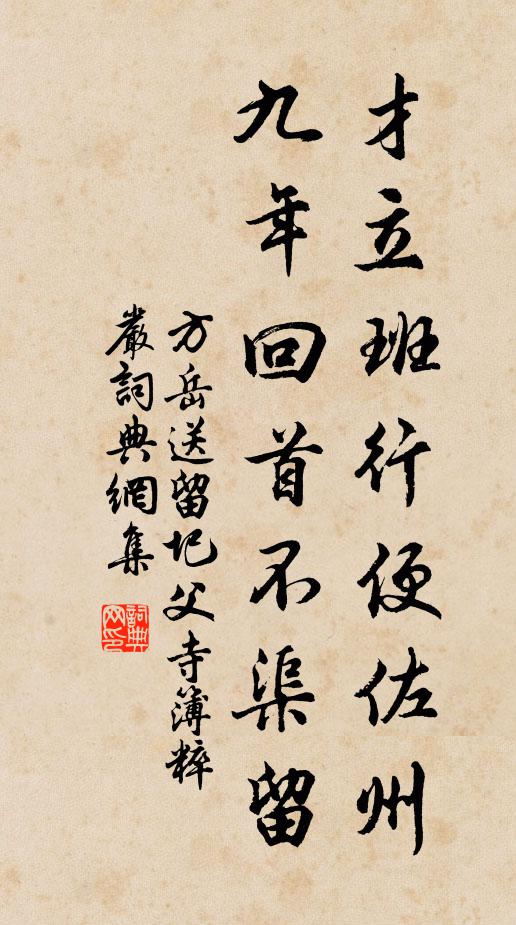 才立班行便佐州
九年回首不渠留
方岳送留圯父寺簿粹
嚴詞典網集
詞典網印